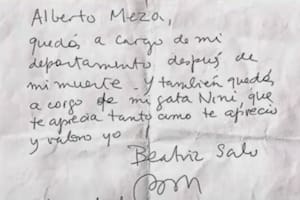 Alberto Meza,
quedás a cargo de mi
departamento después de
mi muerte. Y también quedás
a cargo de mi gata Niní, que
te aprecia tanto como te aprecio
y valoro yo
Beatriz Sarlo